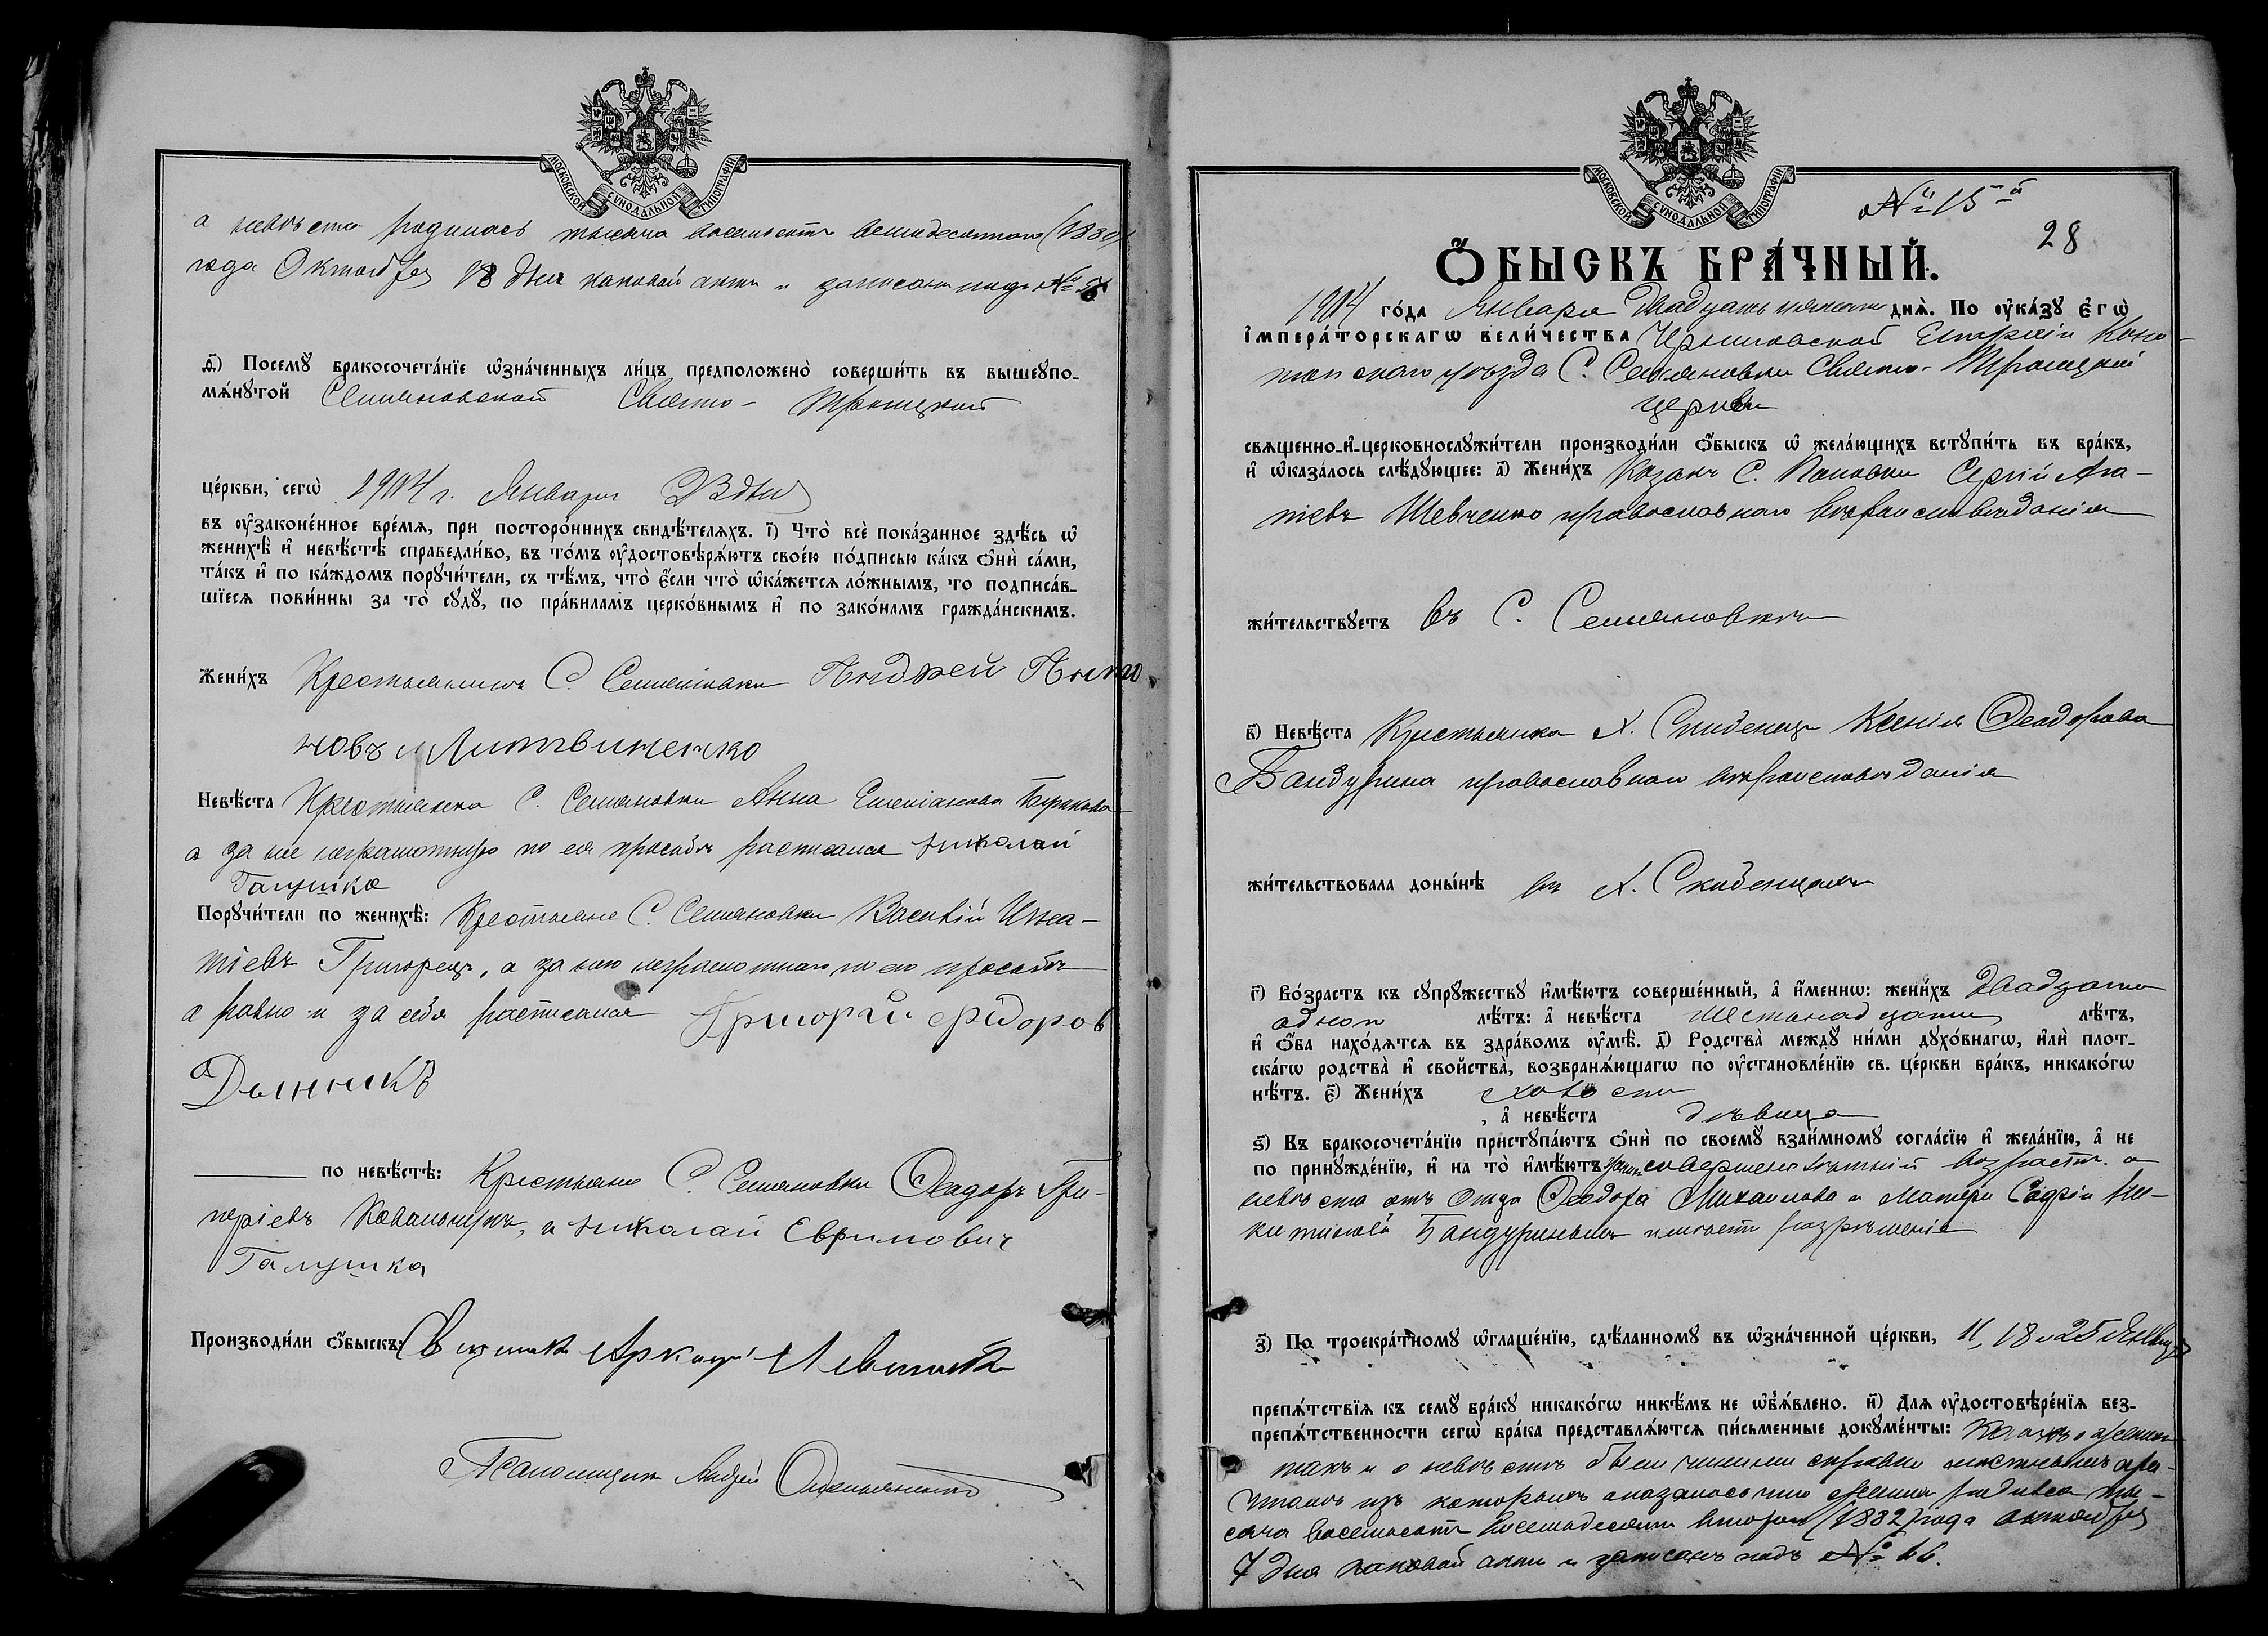 МОСКОВСКОЙ СѴНОДАЛЬНОЙ ТИПОГРАФІИ
а невѣста родилась тысяча восемьсотъ восмидесятого (1880)
года Октобря 18 дня каковой актъ и записанъ подъ №
д҃) Посемꙋ̀ бракосочета́нїе ѡ҆зна́ченныхъ ли́цъ предположено̀ соверши́ть въ вышеꙋпо-
мѧ́нꙋтой Семяновской Свято- Троицкой
це́ркви, сегѡ̀ 1904 г. Января 23 дня
въ ѹ҆законе́нное вре́мѧ, при посторо́ннихъ свидѣ́телѧхъ. і҃) Что̀ всѐ пока́занное здѣ́сь ѡ҆
женихѣ̀ и҆ невѣ́стѣ справедли́во, въ то́мъ ѹ҆достовѣрѧ́ютъ свое́ю по́дписью ка́къ ѻ҆нѝ са́ми,
та́къ и҆ по ка́ждомъ порꙋчи́тели, съ тѣ́мъ, что̀ є҆́сли что̀ ѡ҆ка́жетсѧ ло́жнымъ, то подписа́в-
шїесѧ пови́нны за то̀ сꙋдꙋ̀, по пра́виламъ церко́внымъ и҆ по зако́намъ гражда́нскимъ.
Жени́хъ Крестьянинъ С. Семяновки Андрей Анто
новъ Литвиненко
Невѣ́ста Крестьянка С. Семяновки Анна
а за нее неграмотную по ея просьбѣ расписался Николай
Галушка
Порꙋчи́тели по женихѣ̀: Крестьяне С. Семяновки Василій Игна-
тіевъ Григорецъ, а за него неграмотнаго по его просьбѣ
а равно и за себя расписался Григорій Фідоров
Дынникъ
по невѣ́стѣ: Крестьяне С. Семяновки Ѳеодоръ Гри-
горіевъ и Николай Евфимович
Галушка
Производи́ли ѻ҆́быскъ: Священникъ Аркадій
Псаломщикъ Андрей
№ 15й
28
МОСКОВСКОЙ СѴНОДАЛЬНОЙ ТИПОГРАФІИ
Ѻ҆́БЫСКЪ БРА́ЧНЫЙ.
1904 го́да Января двадцать пятаго днѧ̀. По ѹ҆ка́зꙋ є҆гѡ̀
і҆мпера́торскагѡ вели́чества Черниговской Епархіи Коно-
топскаго уѣзда С. Семяновки Свято-Троицкой
церкви
свѧщенно-и҆-церковнослꙋжи́тели производи́ли ѻ҆́быскъ ѡ҆ жела́ющихъ встꙋпи́ть въ бра́къ,
и҆ ѡ҆каза́лось слѣ́дꙋющее: а҃) Жени́хъ Козакъ С. Поповки Сергій Ага-
піевъ Шевченко православнаго вѣроисповѣданія
жи́тельствꙋетъ въ С. Семяновкѣ
в҃) Невѣ́ста Крестьянка Х. Ксенія Ѳеодорова
Бандурина православнаго вѣроисповѣданія
жи́тельствовала доны́нѣ въ Х.
г҃) Во́зрастъ къ сꙋпрꙋ́жествꙋ и҆мѣ́ютъ соверше́нный, а҆ и҆́меннѡ: жени́хъ двадцати
одного лѣ́тъ: а҆ невѣ́ста шестьнадцати лѣ́тъ,
и҆ ѻ҆́ба нахо́дѧтсѧ въ здра́вомъ ѹ҆мѣ̀. д҃) Родства̀ междꙋ ни́ми дꙋхо́внагѡ, и҆лѝ плот-
ска́гѡ родства̀ и҆ сво́йства, возбранѧ́ющагѡ по ѹ҆становле́нїю св. це́ркви бра́къ, никако́гѡ
нѣ́тъ. є҃) Жени́хъ холостъ
, а҆ невѣ́ста дѣвица
ѕ҃) Къ бракосочета́нїю пристꙋпа́ютъ ѻ҆нѝ по своемꙋ̀ взаи́мномꙋ согла́сїю и҆ жела́нїю, а҆ не
по принꙋжде́нїю, и҆ на то̀ и҆мѣ́ютъ женихъ совершеннолѣтній возрастъ а
невѣста отъ отца Ѳеодора Михаилова и матери Софіи Ни-
китиной Бандуриныхъ имѣетъ разрѣшеніе
з҃) По троекра́тномꙋ ѡ҆глаше́нїю, сдѣ́ланномꙋ въ ѡ҆зна́ченной це́ркви, 11, 18 и 25 Января
препѧ́тствїѧ къ семꙋ̀ бра́кꙋ никако́гѡ никѣ́мъ не ѡ҆б̾ѧ́влено. и҃) Длѧ ѹ҆достовѣре́нїѧ без-
препѧ́тственности сегѡ̀ бра́ка представлѧ́ютсѧ пи́сьменные докꙋме́нты: Какъ о женихѣ
такъ и о невѣстѣ были чинимы справки мѣстнымъ при-
чтомъ изъ которыхъ оказалось что женихъ родился ты-
сяча восемьсотъ восемьдесятъ второго (1882) года октобря
7 дня каковой актъ и записанъ подъ № 66.